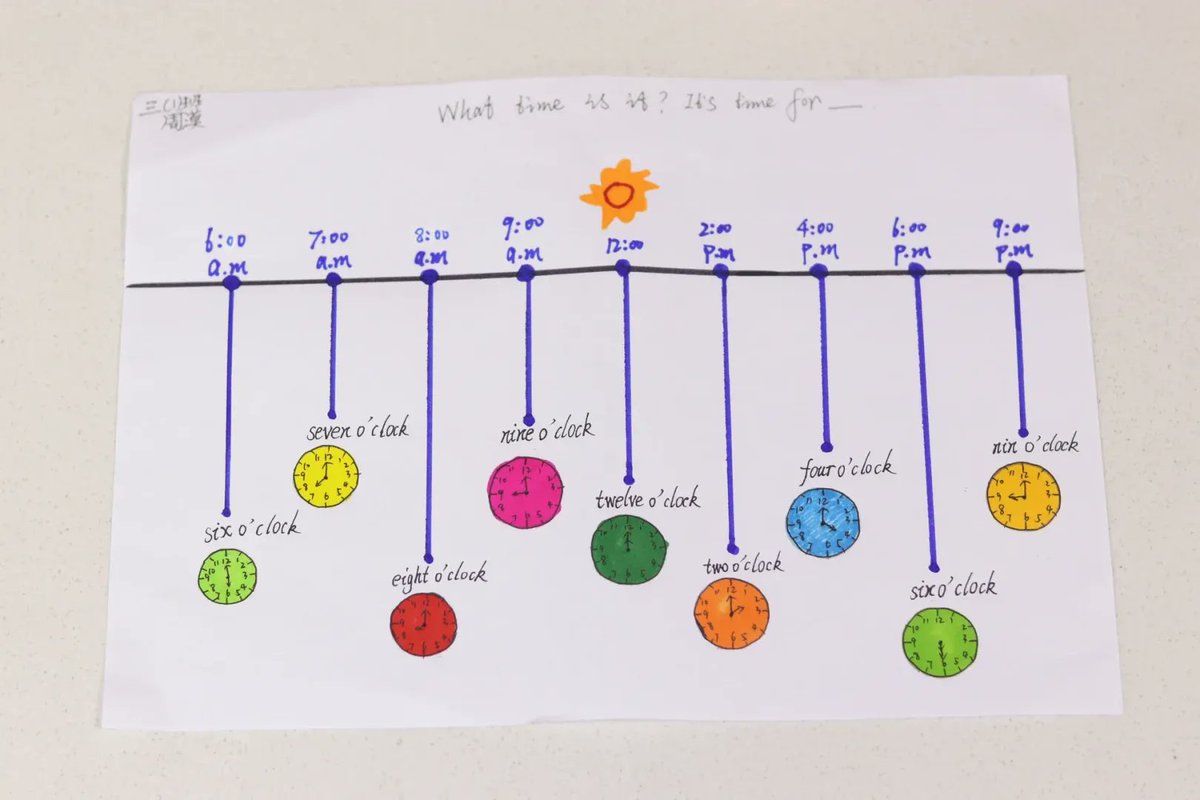 三(1)班
周漢
What time is it? It's time for __
6:00
a.m
7:00
a.m
8:00
a.m
9:00
a.m
12:00
2:00
p.m
4:00
p.m
6:00
p.m
9:00
p.m
seven o'clock
nine o'clock
nin o'clock
four o'clock
twelve o'clock
six o'clock
two o'clock
eight o'clock
six o'clock